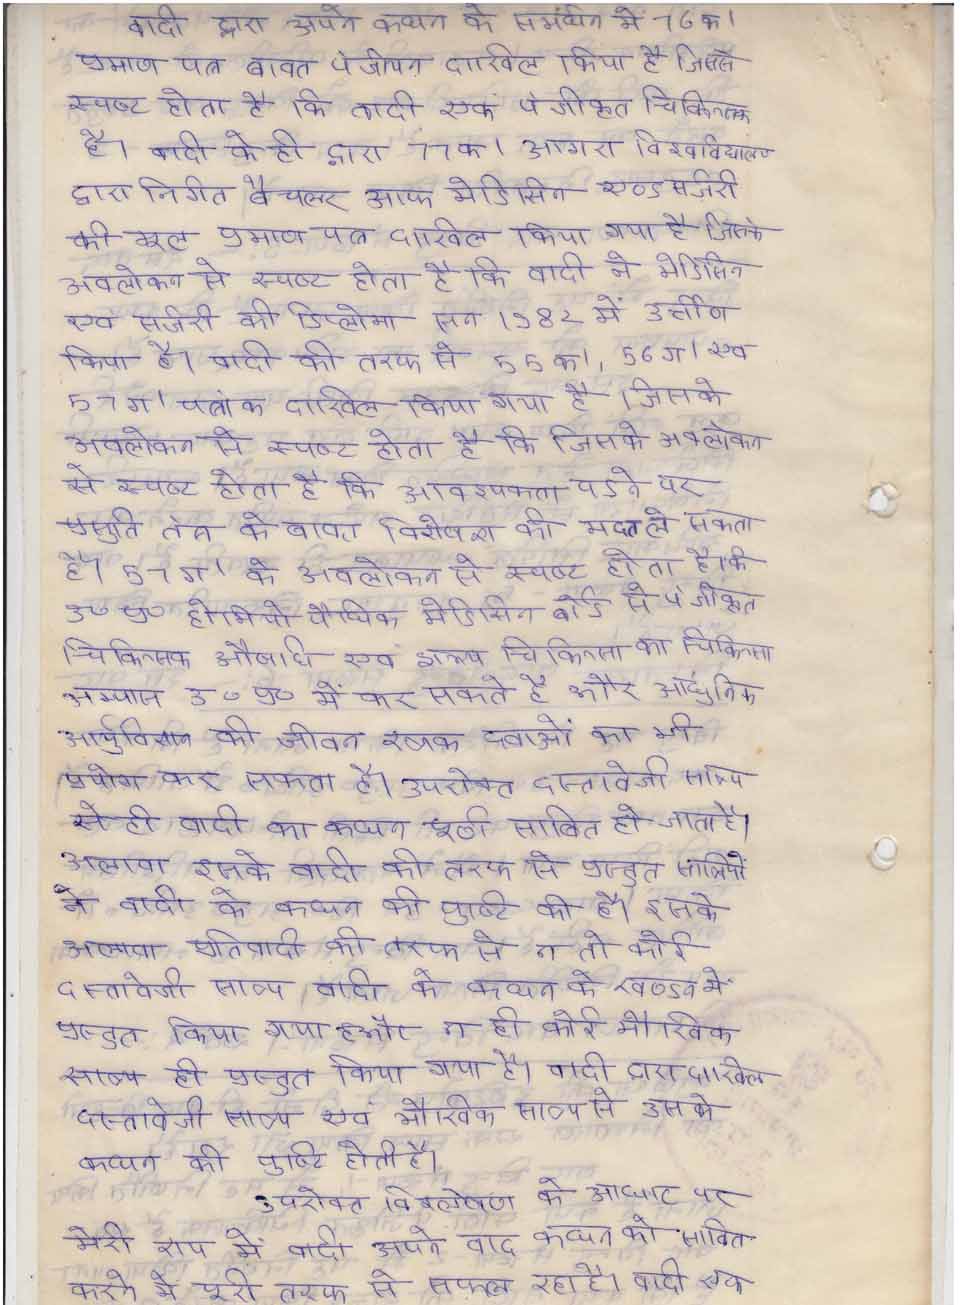 वादी द्वारा अपने कथन के समर्थन में 76क1
प्रमाण पत्र बावत पंजीयन दाखिल किया है जिससे
स्पष्ट होता है कि वादी एक पंजीकृत चिकित्सक
है। वादी के ही द्वारा 77क1 आगरा विश्वविद्यालय
द्वारा निर्गत बैचलर आफ मेडिसिन एण्ड सर्जरी
की मूल प्रमाण पत्र दाखिल किया गया है जिसके
अवलोकन से स्पष्ट होता है कि वादी ने मेडिसिन
एवं सर्जरी की डिप्लोमा सन 1982 में उर्त्तीण
किया है। वादी की तरफ से 55क1, 56ग1 एवं
57ग1 पत्रांक दाखिल किया गया है जिसके
अवलोकन से स्पष्ट होता है कि जिसके अवलोकन
से स्पष्ट होता है कि आवश्यकता पडने पर
प्रसुति तंत्र के बावत विशेषज्ञ की मदद ले सकता
है। 57ग1 के अवलोकन से स्पष्ट होता है कि
उ0 प्र0 होमियोपैथिक मेडिसिन बोर्ड से पंजीकृत
चिकित्सक औषधि एवं शल्य चिकित्सा का चिकित्सा
अभ्यास उ0 प्र0 में कर सकते है और आधुनिक
आर्युविज्ञान की जीवन रक्षक दवाओं का भी
प्रयोग कर सकता है। उपरोक्त दस्तावेजी साक्ष्य
से ही वादी का कथन पूर्ण साबित हो जाता है।
अलावा इसके वादी की तरफ से प्रस्तुत साक्षियों
ने वादी के कथन की पुष्टि की है। इसके
अलावा प्रतिवादी की तरफ से न तो कोई
दस्तावेजी साक्ष्य वादी के कथन के खण्डन में
प्रस्तुत किया गया है और न ही कोई मौखिक
साक्ष्य ही प्रस्तुत किया गया है। वादी द्वारा दाखिल
दस्तावेजी साक्ष्य एवं मौखिक साक्ष्य से उसके
कथन की पुष्टि होती है।
उपरोक्त विश्लेषण के आधार पर
मेरी राय में वादी अपने वाद कथन को साबित
करने में पूरी तरफ से सफल रहा है। वादी एक